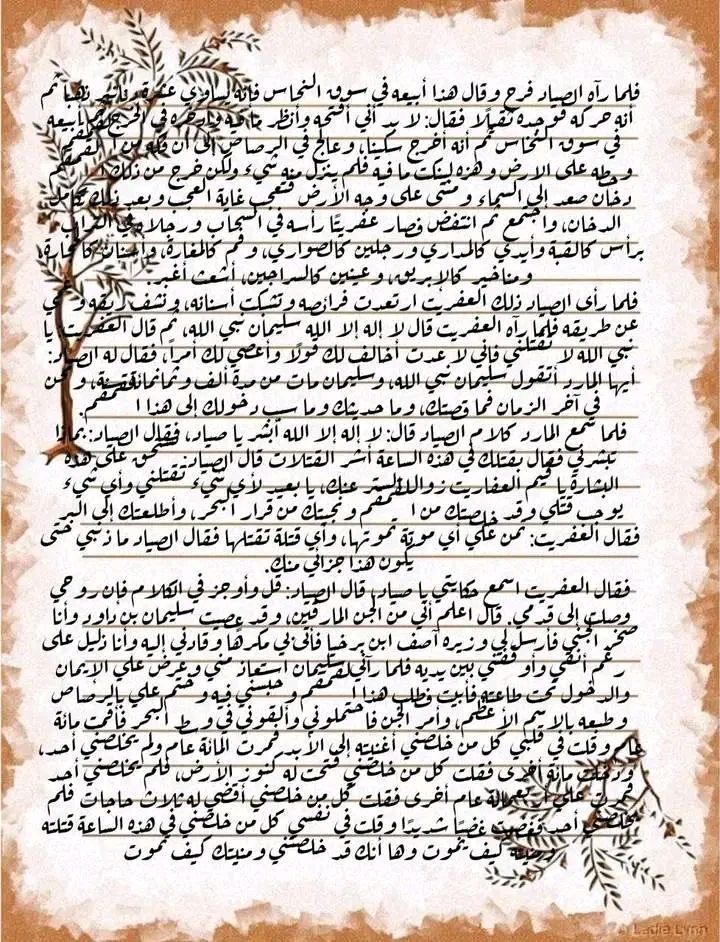 فلما رآه الصياد فرح وقال هذا أبيعه في سوق النحاس فإنه يساوي عشرة دنانير ذهبا ثم
أنه حركه فوجده ثقيلًا فقال: لا بد أني أفتحه وأنظر ما فيه وأدخره في الخرج ثم أبيعه
في سوق النحاس ثم أنه أخرج سكينا، وعالج في الرصاص إلى أن فكه من القمقم
وحطه على الارض وهزه لينكت ما فيه فلم ينزل منه شيء ولكن خرج من ذلك ا
دخان صعد إلى السماء ومشى على وجه الأرض فتعجب غاية العجب وبعد ذلك تكامل
الدخان، واجتمع ثم انتفض فصار عفريتًا رأسه في السحاب ورجلاه في التراب
برأس كالقبة وأيدي كالمداري ورجلين كالصواري، وفم كالمغارة، وأسنان كالحجارة،
ومناخير كالإبريق، وعينين كالسراجين، أشعث أغبر.
فلما رأى الصياد ذلك العفريت ارتعدت فرائصه وتشبكت أسنانه، ونشف ريقه وعمي
عن طريقه فلما رآه العفريت قال لا إله إلا الله سليمان نبي الله، ثم قال العفريت: يا
نبي الله لا تقتلني فإني لا عدت أخالف لك قولًا وأعصي لك أمراً، فقال له الصياد:
أيها المارد أتقول سليمان نبي الله، وسليمان مات من مدة ألف وثمانمائة سنة، ونحن
في آخر الزمان فما قصتك، وما حديثك وما سبب دخولك إلى هذا ا لقمقم.
فلما سمع المارد كلام الصياد قال: لا إله إلا الله أبشر يا صياد، فقال الصياد: بماذا
تبشرني فقال بقتلك في هذه الساعة أشر القتلات قال الصياد: تستحق على هذه
البشارة يا قيم العفاريت زوال الستر عنك، يا بعيد لأي شيء تقتلني وأي شيء
يوجب قتلي وقد خلصتك من ا لقمقم ونجيتك من قرار البحر، وأطلعتك إلى البر
فقال العفريت: تمن علي أي موتة تموتها، وأي قتلة تقتلها فقال الصياد ما ذنبي حتى
يكون هذا جزائي منك.
فقال العفريت اسمع حكايتي يا صياد، قال الصياد: قل وأوجز في الكلام فإن روحي
وصلت إلى قدمي. قال اعلم أني من الجن المارقين، وقد عصيت سليمان بن داود وأنا
صخر الجني فأرسل لي وزيره آصف ابن برخيا فأتى بي مكرهًا وقادني إليه وأنا ذليل على
رغم أنفي وأوقفني بين يديه فلما رآني سليمان استعاذ مني وعرض علي الإيمان
والدخول تحت طاعته فأبيت فطلب هذا ا لقمقم وحبسني فيه وختم علي بالرصاص
وطبعه بالاسم الأعظم، وأمر الجن فاحتملوني وألقوني في وسط البحر فأقمت مائة
عام وقلت في قلبي كل من خلصني أغنيته إلى الأبد فمرت المائة عام ولم يخلصني أحد،
ودخلت مائة أخرى فقلت كل من خلصني فتحت له كنوز الأرض، فلم يخلصني أحد
فمرت علي أربعمائة عام أخرى فقلت كل من خلصني أقضي له ثلاث حاجات فلم
يخلصني أحد فغضبت غضبًا شديدًا وقلت في نفسي كل من خلصني في هذه الساعة قتلته
ومنيته كيف يموت وها أنك قد خلصتني ومنيتك كيف تموت
Ladie Lynn